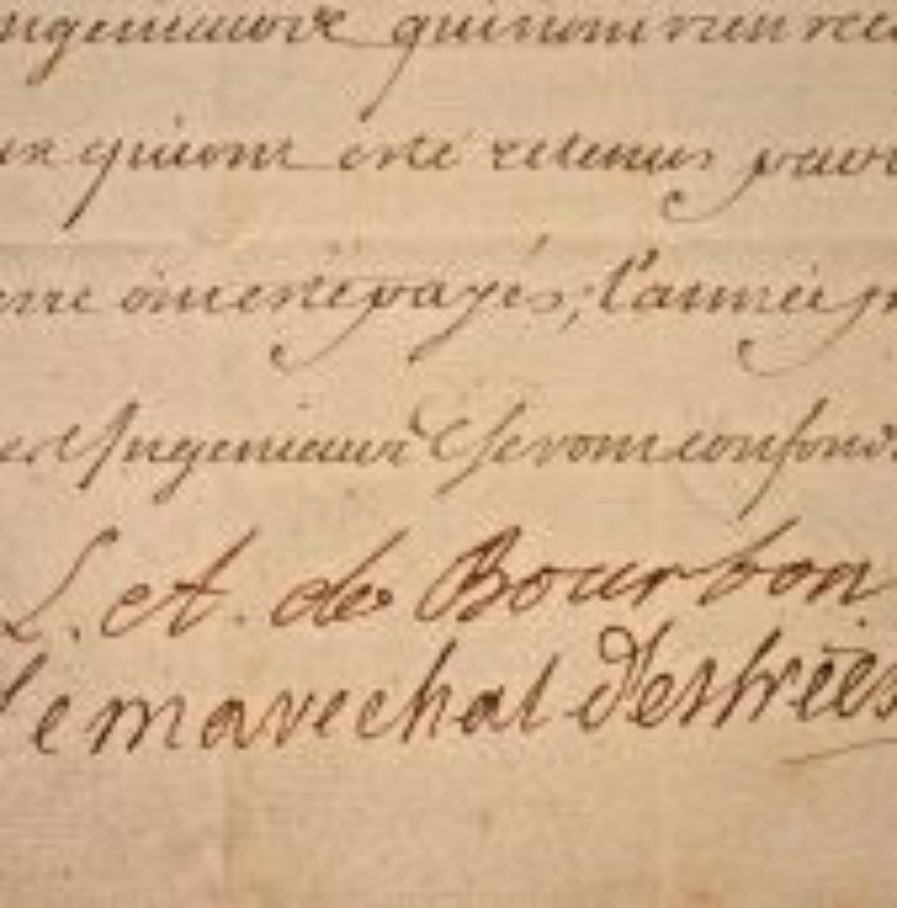 ngenieurs qui nont rien rece
ux qui ont esté retenus pour
erre ont esté payés, l'année p
Ingenieurs & seront confond
L. A. de Bourbon
le marechal d'estrées